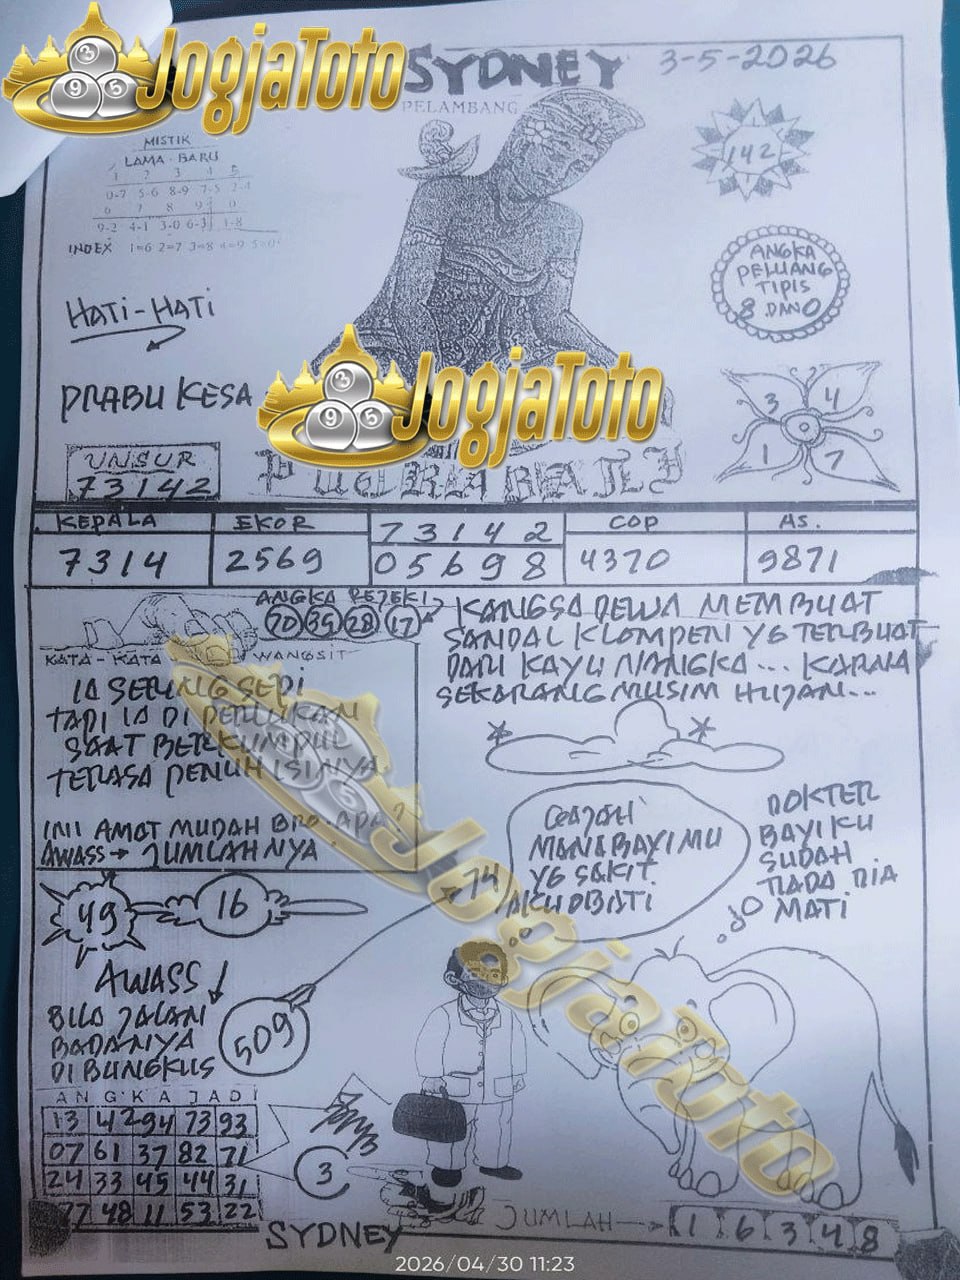 JogjaToto
SYDNEY
3-5-2026
PELAMBANG
MISTIK
LAMA - BARU
1 2 3 4 5
0-7 5-6 8-9 7-5 2-4
6 7 8 9 0
9-2 4-1 3-0 6-3 1-8
INDEX 1=6 2=7 3=8 4=9 5=0
142
ANGKA
PELUANG
TIPIS
8 DAN 0
HATI-HATI
PRABU KESA
JogjaToto
3 4
1 7
UNSUR
73142
KEPALA EKOR 73142 COP AS.
7314 2569 05698 4370 9871
ANGKA REJEKI
70 39 28 17
KATA - KATA WANGSIT
IA SERING SEPI
TAPI IA DI PERLUKAN
SAAT BERKUMPUL
TERASA PENUH ISINYA
INI AMAT MUDAH BRO. APA?
AWASS → JUMLAHNYA
KANGSA DEWA MEMBUAT
SANDAL KLOMPEN YG TERBUAT
DARI KAYU NANGKA... KARNA
SEKARANG MUSIM HUJAN...
MANA BAYI MU
YG SAKIT
AKU OBATI
DOKTER
BAYIKU
SUDAH
TIADA DIA
MATI
JogjaToto
74
49 16
AWASS
BILA JALAN
BADANYA
DI BUNGKUS
509
ANGKA JADI
13 42 94 73 93
07 61 37 82 71
24 33 45 44 31
77 48 11 53 22
3
SYDNEY
JUMLAH → 1 6 3 4 8
2026/04/30 11:23